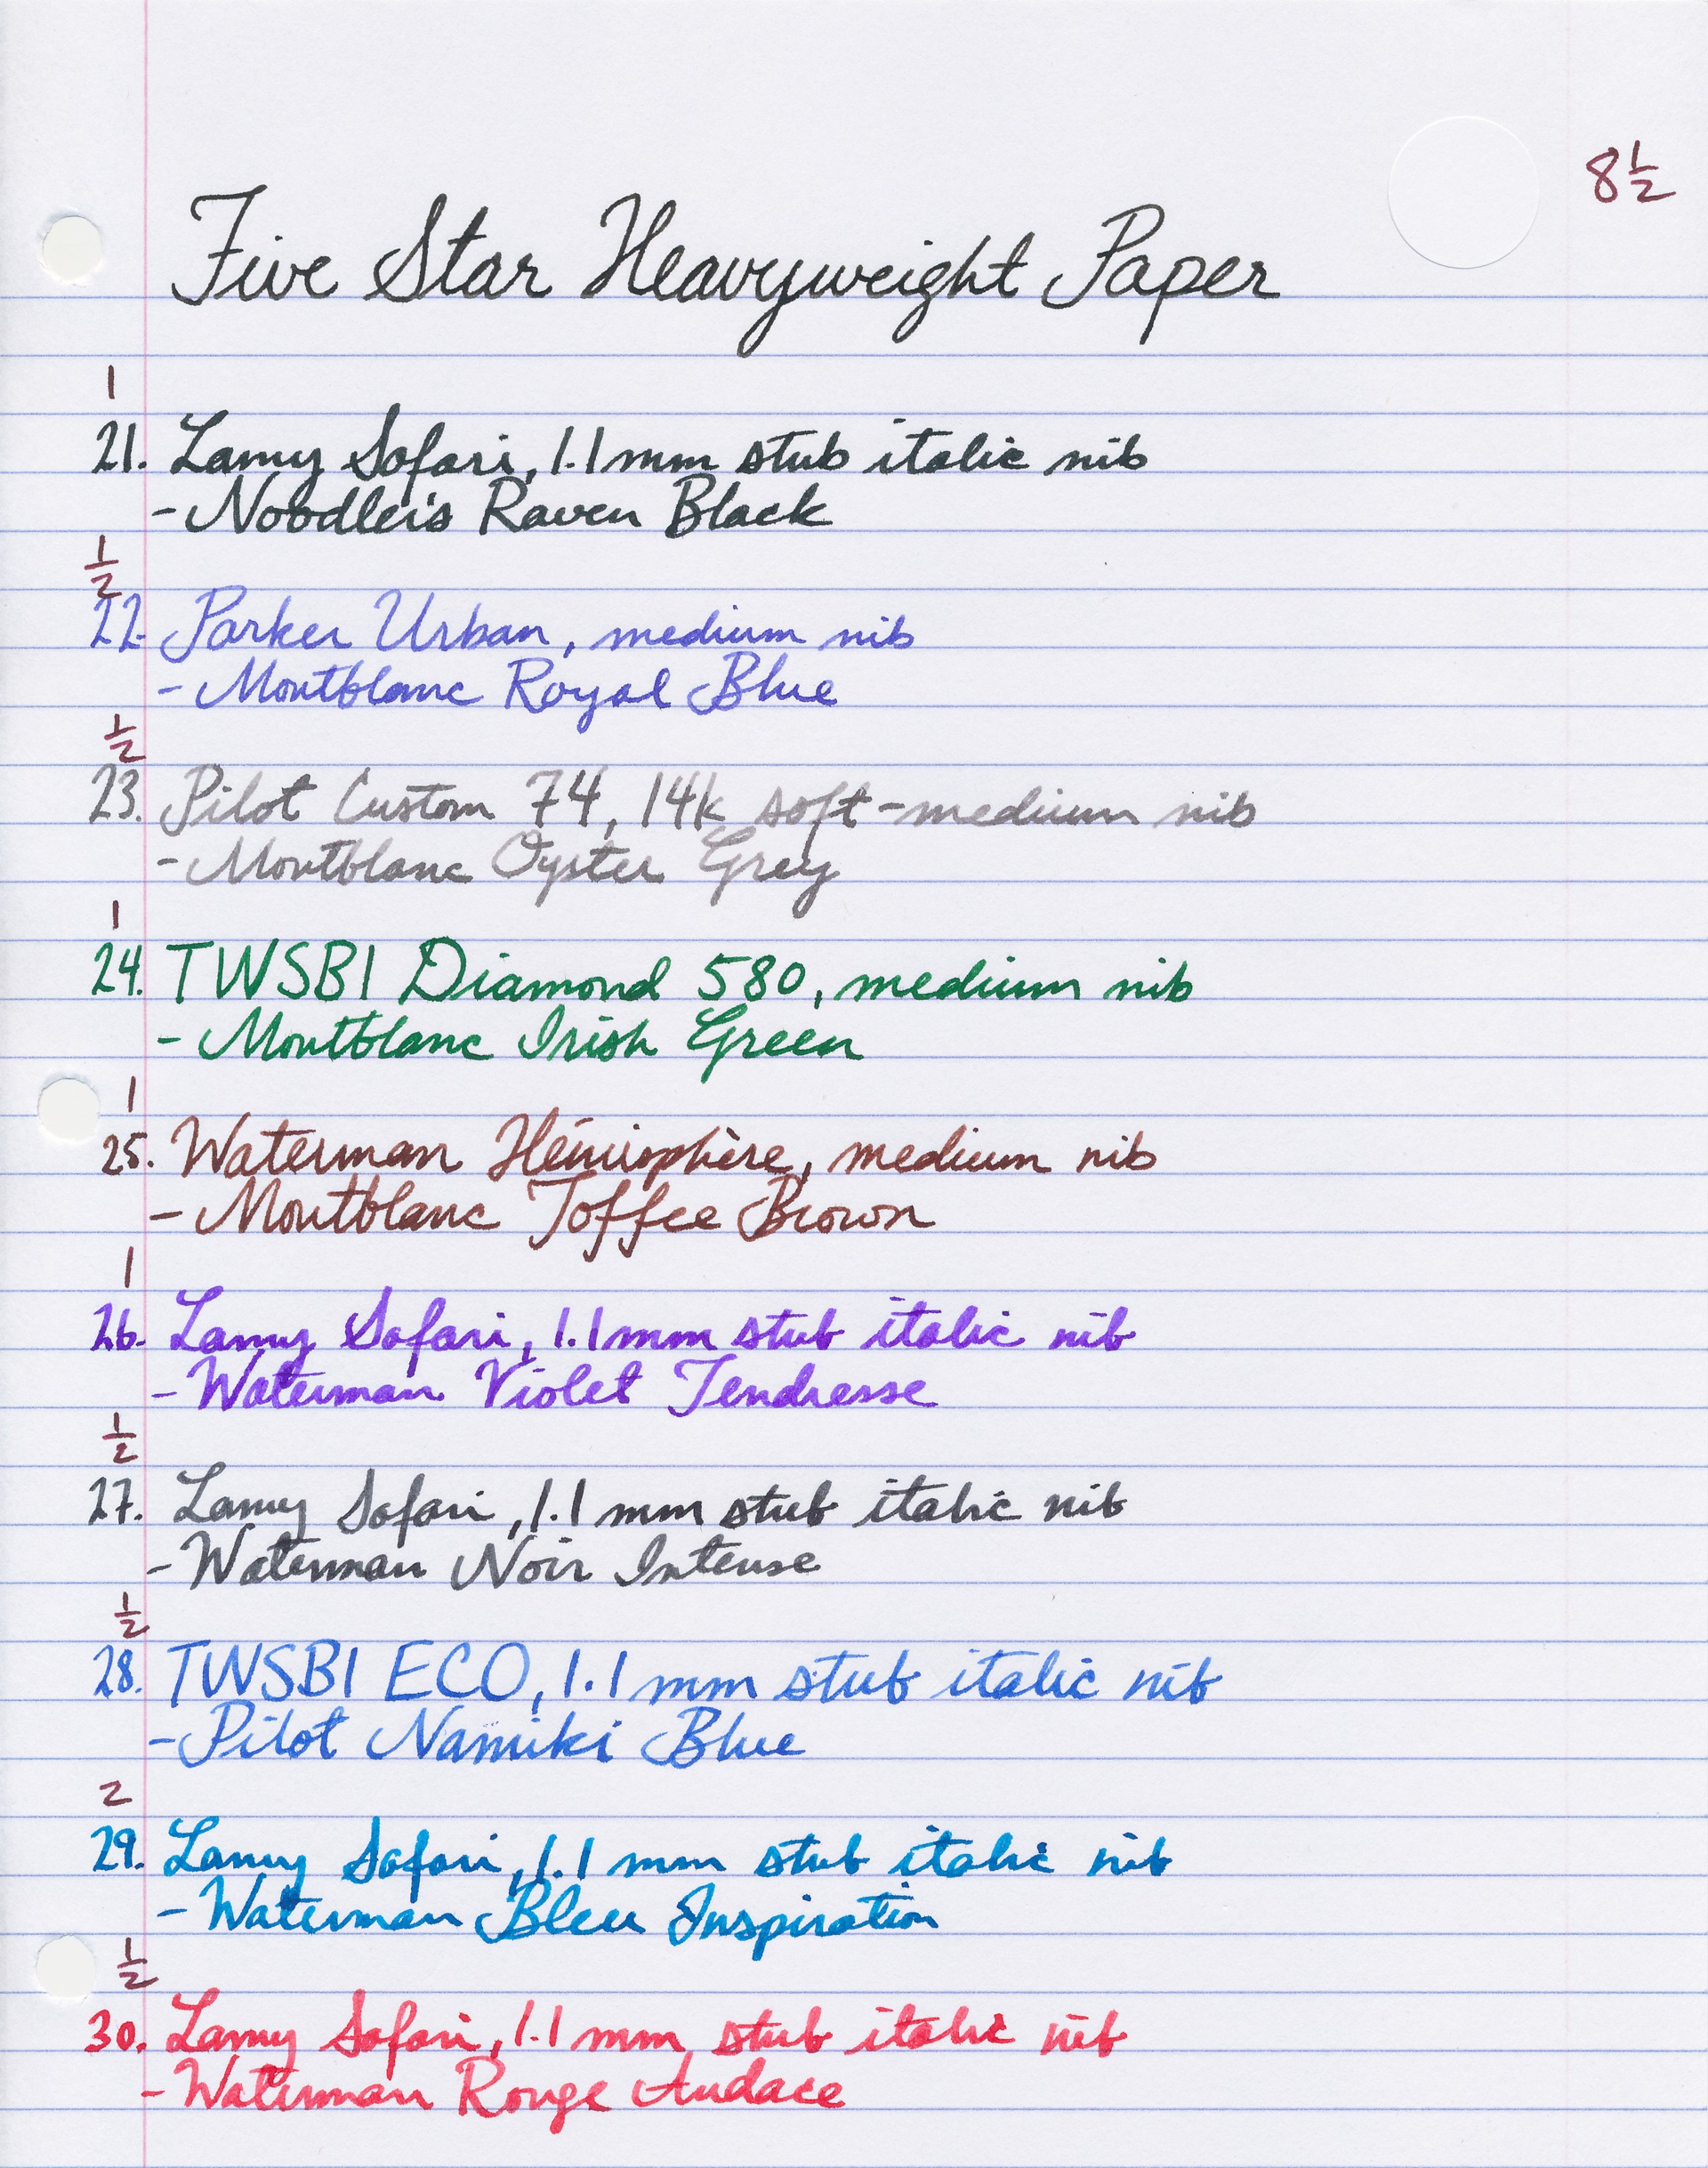 8 1/2
Five Star Heavyweight Paper
1
21. Lamy Safari, 1.1mm stub italic nib
- Noodler's Raven Black
1/2
22. Parker Urban, medium nib
- Montblanc Royal Blue
1/2
23. Pilot Custom 74, 14k soft-medium nib
- Montblanc Oyster Grey
1
24. TWSBI Diamond 580, medium nib
- Montblanc Irish Green
1
25. Waterman Hémisphère, medium nib
- Montblanc Toffee Brown
1
26. Lamy Safari, 1.1mm stub italic nib
- Waterman Violet Tendresse
1/2
27. Lamy Safari, 1.1mm stub italic nib
- Waterman Noir Intense
1/2
28. TWSBI ECO, 1.1mm stub italic nib
- Pilot Namiki Blue
2
29. Lamy Safari, 1.1mm stub italic nib
- Waterman Bleu Inspiration
1/2
30. Lamy Safari, 1.1mm stub italic nib
- Waterman Rouge Audace